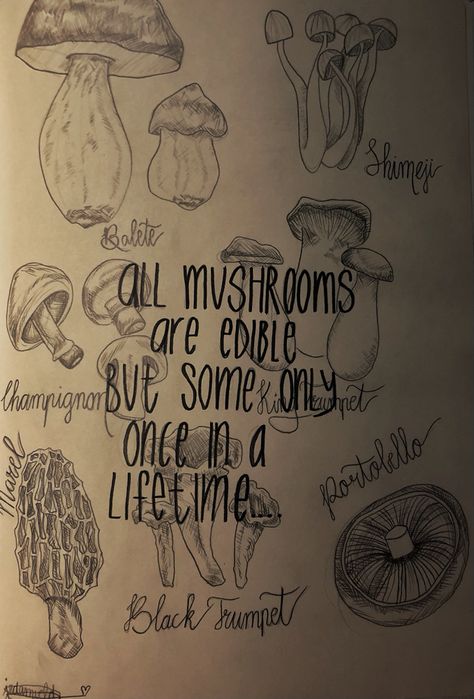 Shimeji
Balete
ALL MUSHROOMS
are EDIBLE
BUT SOME only
once in a
LIFETIME....
Champignon
King Trumpet
Morel
Portobello
Black Trumpet